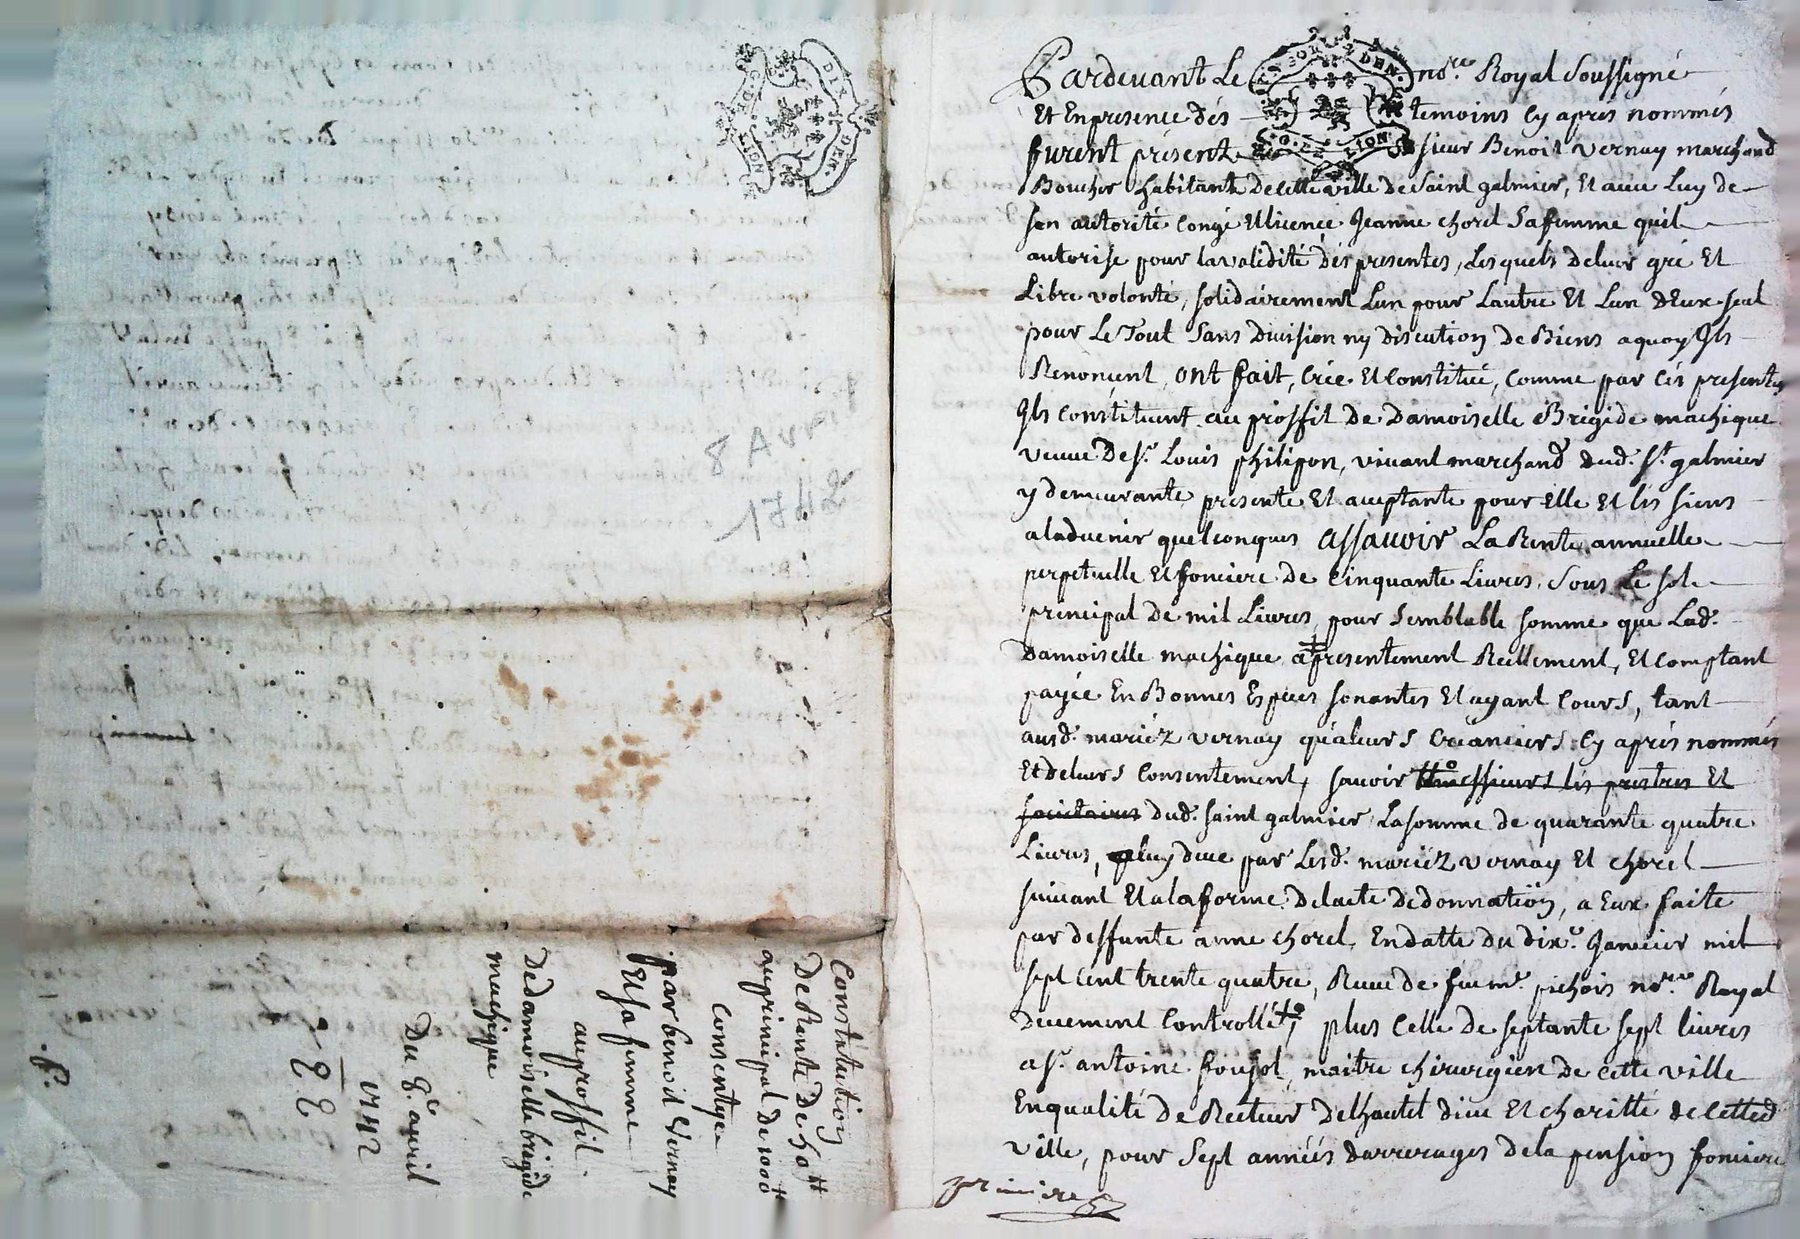 G. DE LION
DIX DEN.
8 Avril
1742
Constitution
De Rente De 50 ₶
au principal de 1000 ₶
Consentye
par benoit Vernay
Et sa femme
au proffit
De damoiselle brigide
machique
Du 8e. avril
1742
22
Pardevant Le nore. Royal soussigné
Et En presence dés temoins Cy aprés nommés
furent présents sieur Benoit vernay marchand
Boucher habitant de cette ville de saint galmier, Et avec Luy de
son autorité Congé Et licence Jeanne chorel sa femme quil
autorise pour la validité dés presentes, Lesquels de leur gré Et
Libre volonté, solidairement Lun pour Lautre Et Lun dEux seul
pour Le Tout sans division ny discution de Biens a quoy Ils
Renoncent, ont fait, Crée Et Constitué, Comme par Cés presentes
Ils Constituent au proffit de Damoiselle Brigide machique
veuve De sr. Louis philipon, vivant marchand dud. st. galmier
y demeurante presente Et aceptante pour Elle Et lés siens
a ladvenir quelconques assavoir La Rente annuelle
perpetuelle Et fonciere de Cinquante Livres, sous Le sol
principal de mil Livres, pour semblable somme que Lad.
Damoiselle machique a presentement Reellement, Et Comptant
payée En Bonnes Espéces sonantes Et ayant Cours, tant
ausd. mariéz vernay qu'a leurs Créanciers Cy aprés nommés
Et de leurs Consentement, savoir messieurs lés prestres Et
sociétaires dud. saint galmier La somme de quarante quatre
Livres, a luy deue par Lesd. mariéz vernay Et chorel
suivant Et a la forme de lacte de donnation, a Eux faite
par deffunte anne chorel, En datte du dixe. Janvier mil
sept Cent trente quatre, Receue de feu me. pichois nore. Royal
deuement Controllé, plus Celle de septante sept livres
a sr. antoine foujol, maitre chirurgien de Cette ville
En qualité de Recteur de lhautel dieu Et charitté de Cetted.
ville, pour sept années darrerages de la pension fonciere
premiere